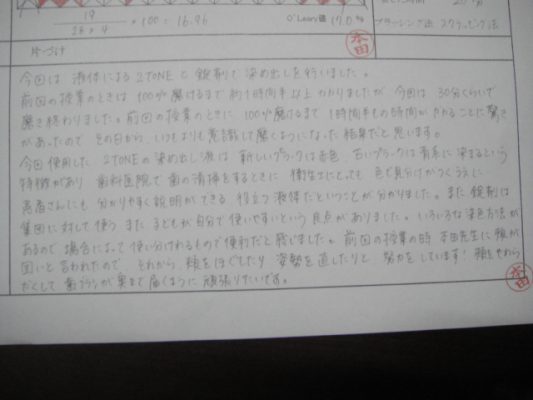 19
28×4 ×100 = 16.96
O'Leary値 17.0%
20分
ブラッシング法 スクラッビング法
本田
片づけ
今回は 液体による 2TONE と 錠剤で 染め出しを行いました。
前回の授業のときは 100%磨けるまで 約1時間半以上かかりましたが、今回は 30分くらいで
磨き終わりました。前回の授業のときに、100%磨けるまで 1時間半もの時間がかかることに驚き
があったので、その日から、いつもよりも意識して磨くようになった結果だと思います。
今回使用した 2TONEの染め出し液は 新しいプラークは赤色、古いプラークは青系に染まるという
特徴があり、歯科医院で歯の清掃をするときに 衛生士にとっても 色で見分けがつくうえに
患者さんにも 分かりやすく説明ができる 役立つ液体だということが分かりました。また 錠剤は
集団に対して使う、また、子どもが自分で使いやすいという良点がありました。いろいろな染色方法が
あるので 場合によって使い分けれるもので便利だと感じました。前回の授業の時 本田先生に頬が
固いと言われたので、それから、頬をほぐしたり 姿勢を直したりと、努力をしています!頬をやわら
かくして 歯ブラシが奥まで届くように 頑張りたいです。
本田